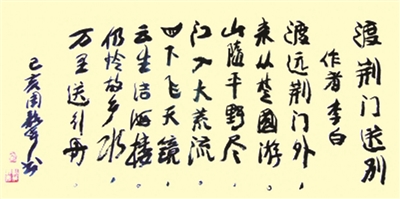 渡荆门送别
作者李白
渡远荆门外，
来从楚国游。
山随平野尽，
江入大荒流。
月下飞天镜，
云生结海楼。
仍怜故乡水，
万里送行舟。
己亥 书